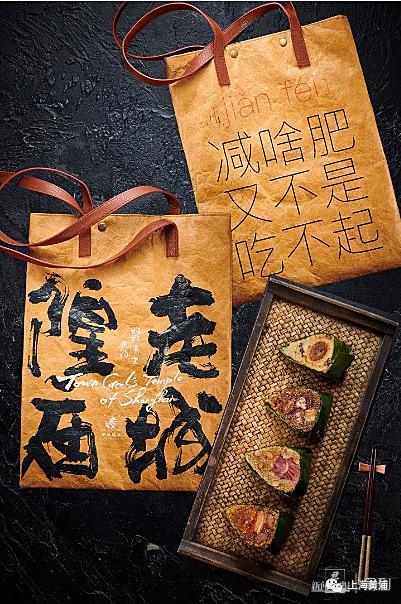 减啥肥
又不是
吃不起
走城
隍庙
Town God's Temple
of Shanghai
上海黄浦